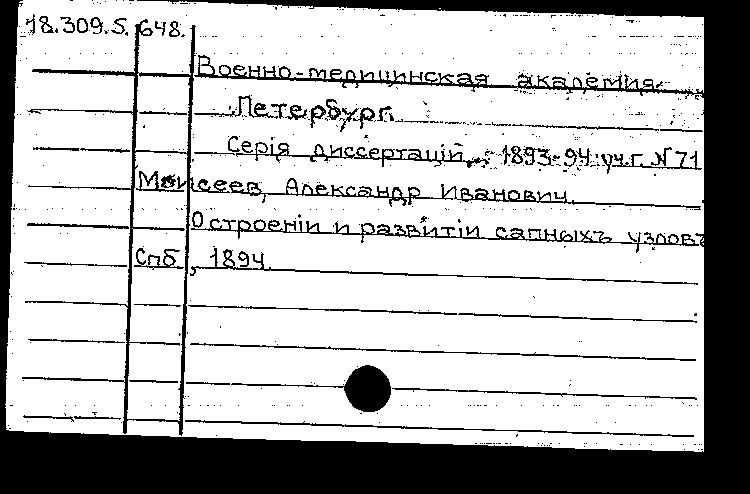 18.309.5.648.
Военно-медицинская академия.
Петербург.
Серія диссертацій, 1893-94 уч.г. N 71
Моисеев, Александр Иванович.
О строеніи и развитіи сапныхъ узловъ
Спб, 1894.